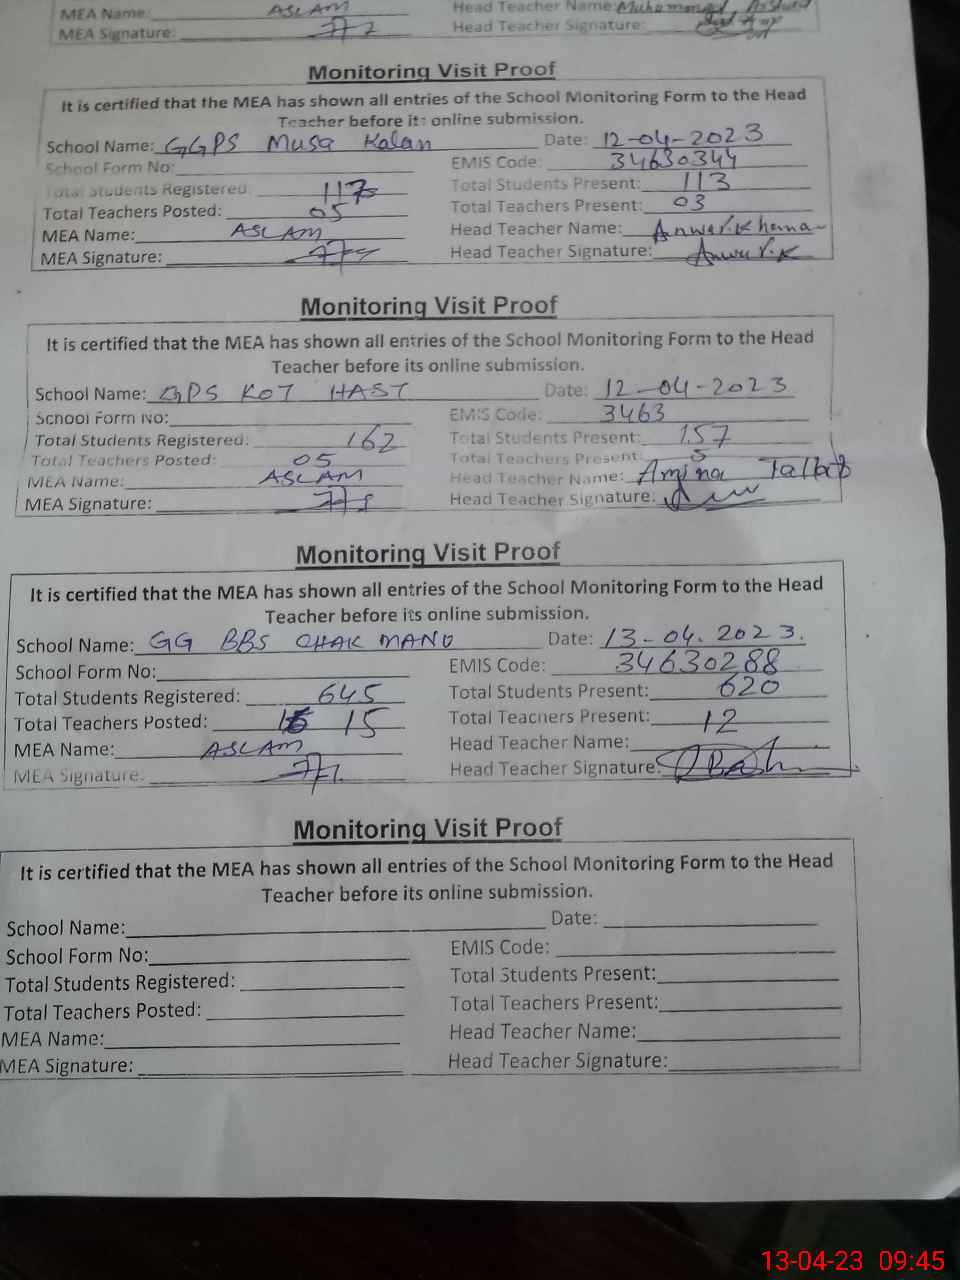 MEA Name: ASLAM Head Teacher Name: Muhammad Arshad
MEA Signature: Head Teacher Signature:
Monitoring Visit Proof
It is certified that the MEA has shown all entries of the School Monitoring Form to the Head
Teacher before its online submission.
School Name: GGPS Musa Kalan Date: 12-04-2023
School Form No: EMIS Code: 34630344
Total Students Registered 117 Total Students Present: 113
Total Teachers Posted: 05 Total Teachers Present: 03
MEA Name: ASLAM Head Teacher Name: Anwar.Khana
MEA Signature: Head Teacher Signature: Anwar.K
Monitoring Visit Proof
It is certified that the MEA has shown all entries of the School Monitoring Form to the Head
Teacher before its online submission.
School Name: GPS KOT HAST Date: 12-04-2023
School Form No: EMIS Code: 3463
Total Students Registered: 162 Total Students Present: 157
Total Teachers Posted: 05 Total Teachers Present: 5
MEA Name: ASLAM Head Teacher Name: Amina Talab
MEA Signature: Head Teacher Signature:
Monitoring Visit Proof
It is certified that the MEA has shown all entries of the School Monitoring Form to the Head
Teacher before its online submission.
School Name: GG BBS CHAK MANO Date: 13-04.2023.
School Form No: EMIS Code: 34630288
Total Students Registered: 645 Total Students Present: 620
Total Teachers Posted: 15 Total Teachers Present: 12
MEA Name: ASLAM Head Teacher Name:
MEA Signature: Head Teacher Signature:
Monitoring Visit Proof
It is certified that the MEA has shown all entries of the School Monitoring Form to the Head
Teacher before its online submission.
School Name: Date:
School Form No: EMIS Code:
Total Students Registered: Total Students Present:
Total Teachers Posted: Total Teachers Present:
MEA Name: Head Teacher Name:
MEA Signature: Head Teacher Signature:
13-04-23 09:45